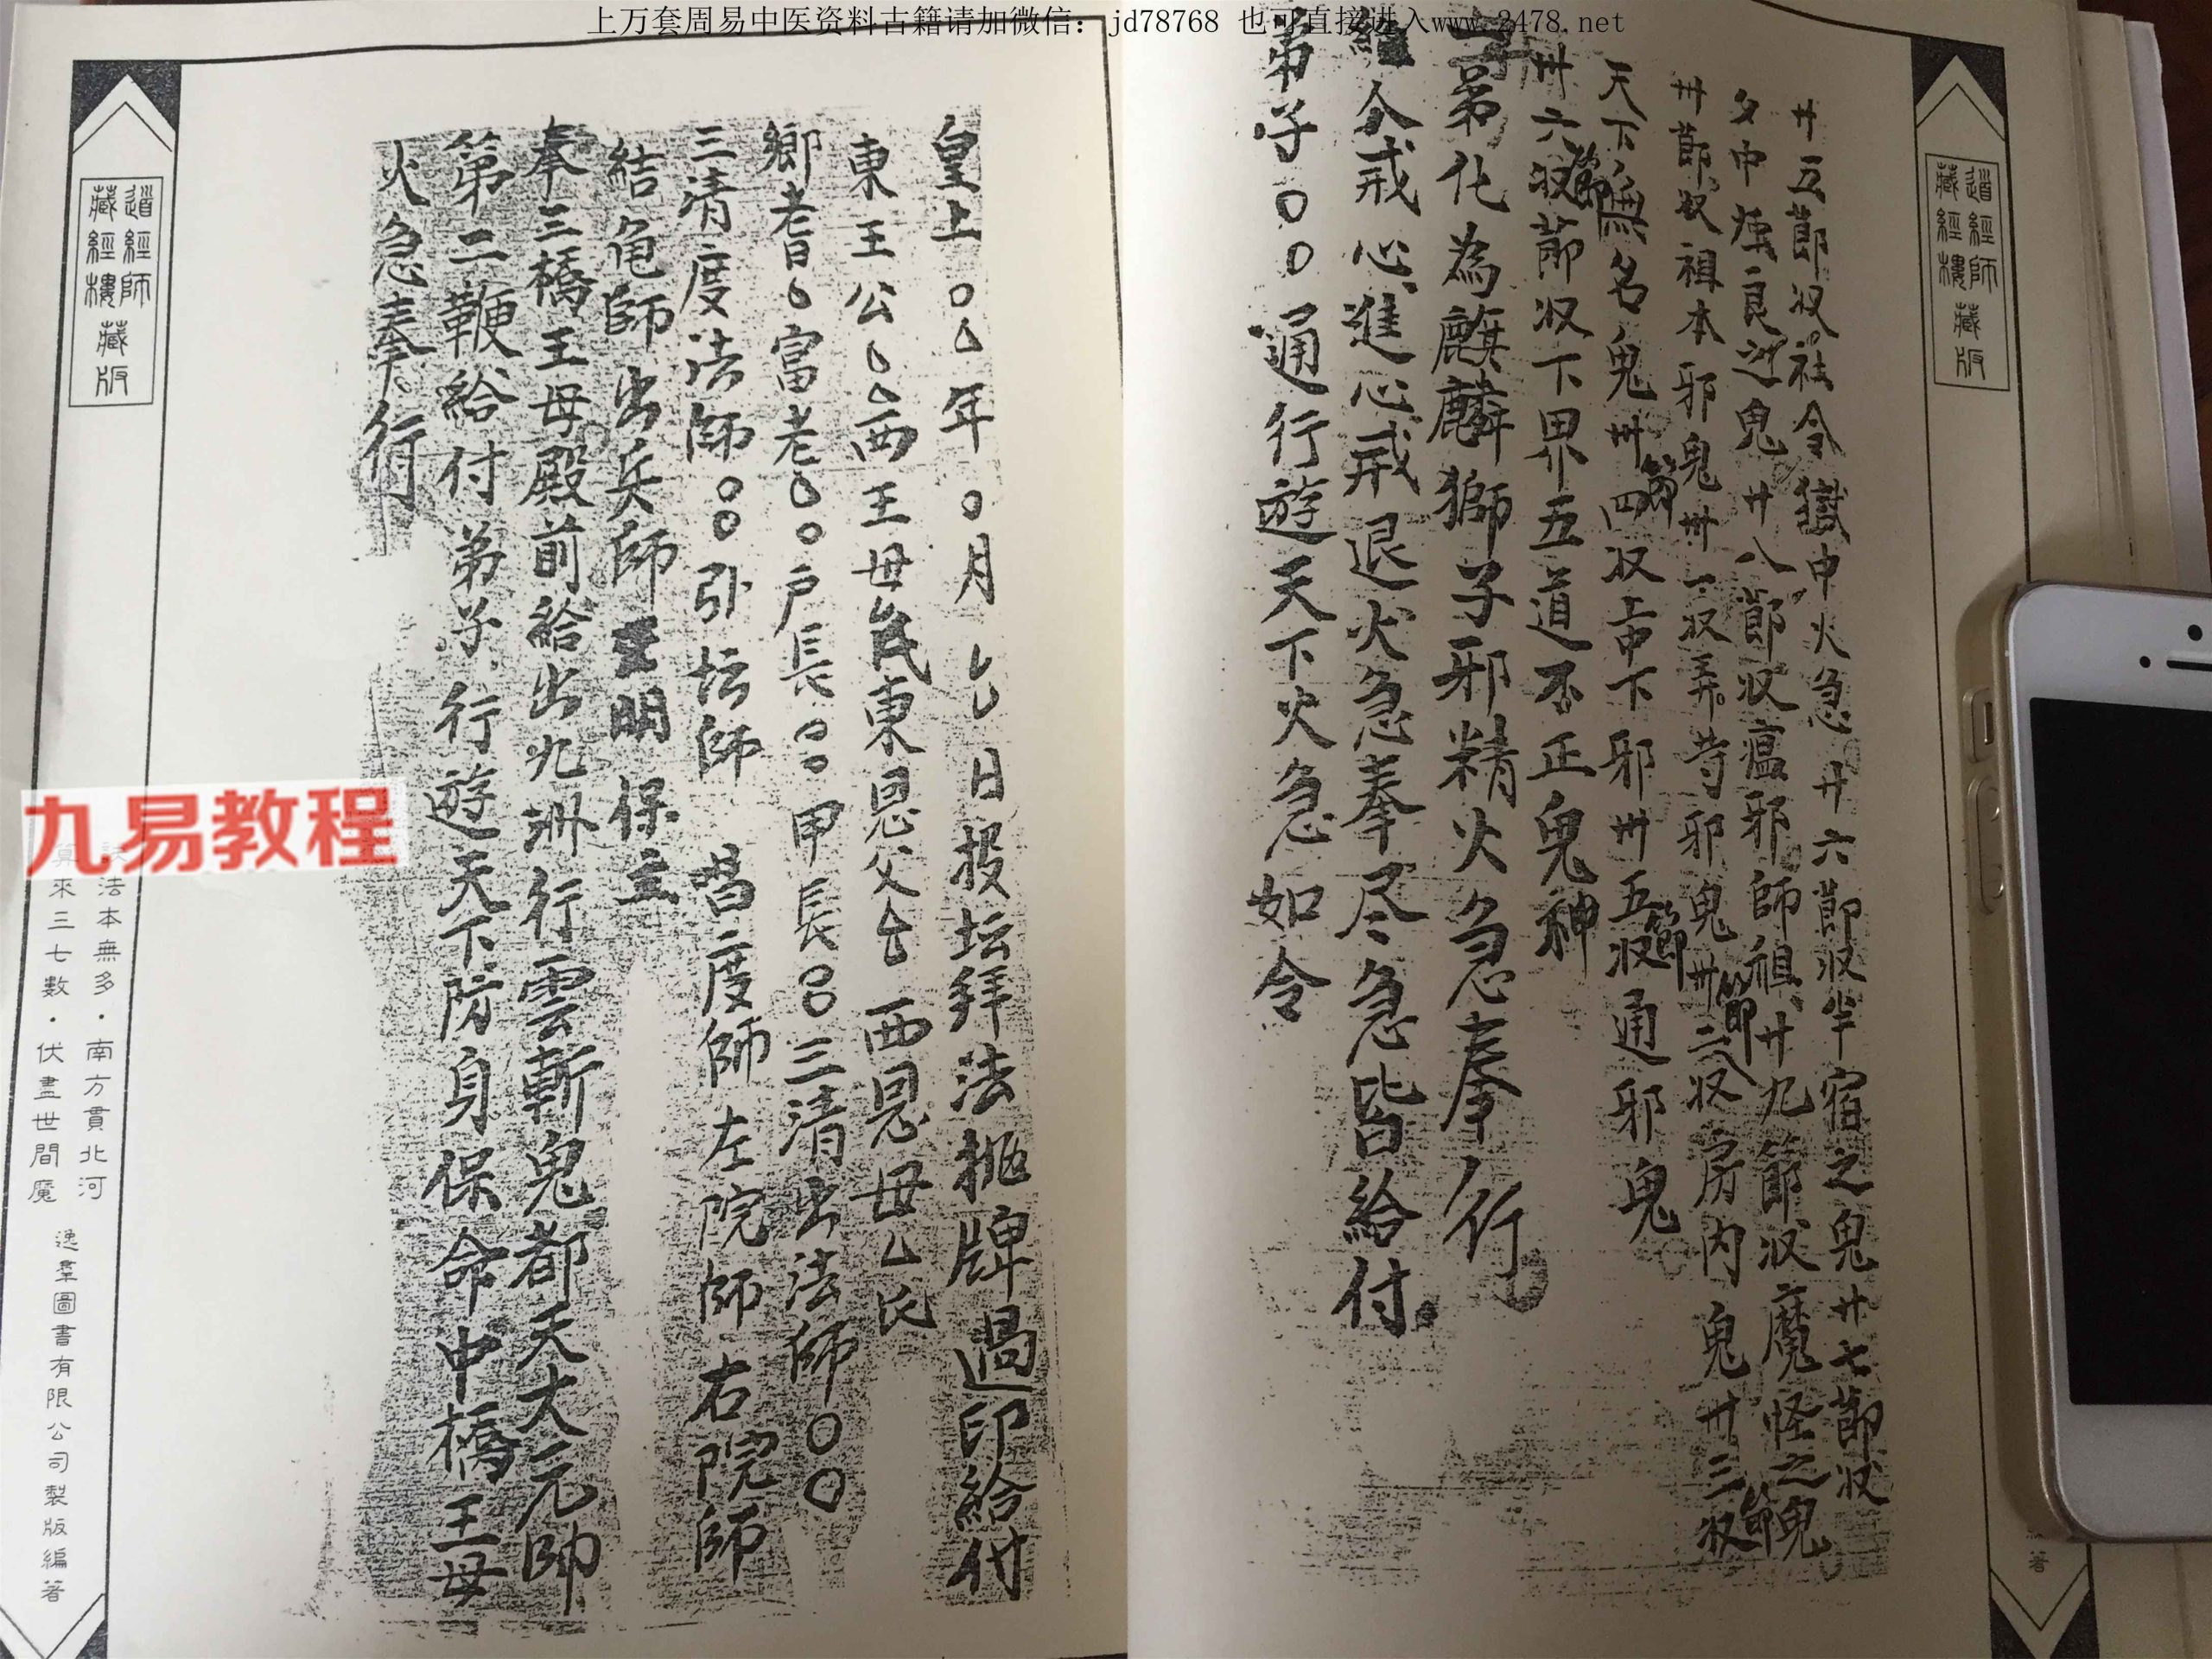 上万套周易中医资料古籍请加微信：jd78768 也可直接进入www.2478.net
道經師
藏經樓
藏版
廿五節收社令獄中火急廿六節收牢宿之鬼廿七節收
廿八節收瘟邪師祖廿九節收魔怪之鬼
卅節收祖本邪鬼卅一收弄苛邪鬼卅二節收房內鬼卅三節收
天下無名鬼卅四節收上中下邪卅五節收通邪鬼
卅六節收節收下界五道不正鬼神
弟化為麒麟獅子邪精火急奉行
給令戒心進心戒退火急奉尽急皆給付
弟子〇〇通行遊天下火急如令
著
皇上〇厶年〇月厶日投坛拜法抛牌過印給付
東王公厶厶西王母氏東恩父台西恩母厶氏
鄉老〇富老〇〇戶長〇〇甲長〇〇三清出法師〇〇
三清度法師〇〇引坛師 昌度師左院師右院師
結龟師出兵師 明 保主
奉三橋王母殿前給出九洲行雲斬鬼都天大元帥
第二鞭給付弟子行遊天下防身保命中橋王母
火急奉行
道經師
藏經樓
藏版
九易教程
法本無多·南方貫北河
來三七數·伏盡世間魔
逸羣圖書有限公司製版編著